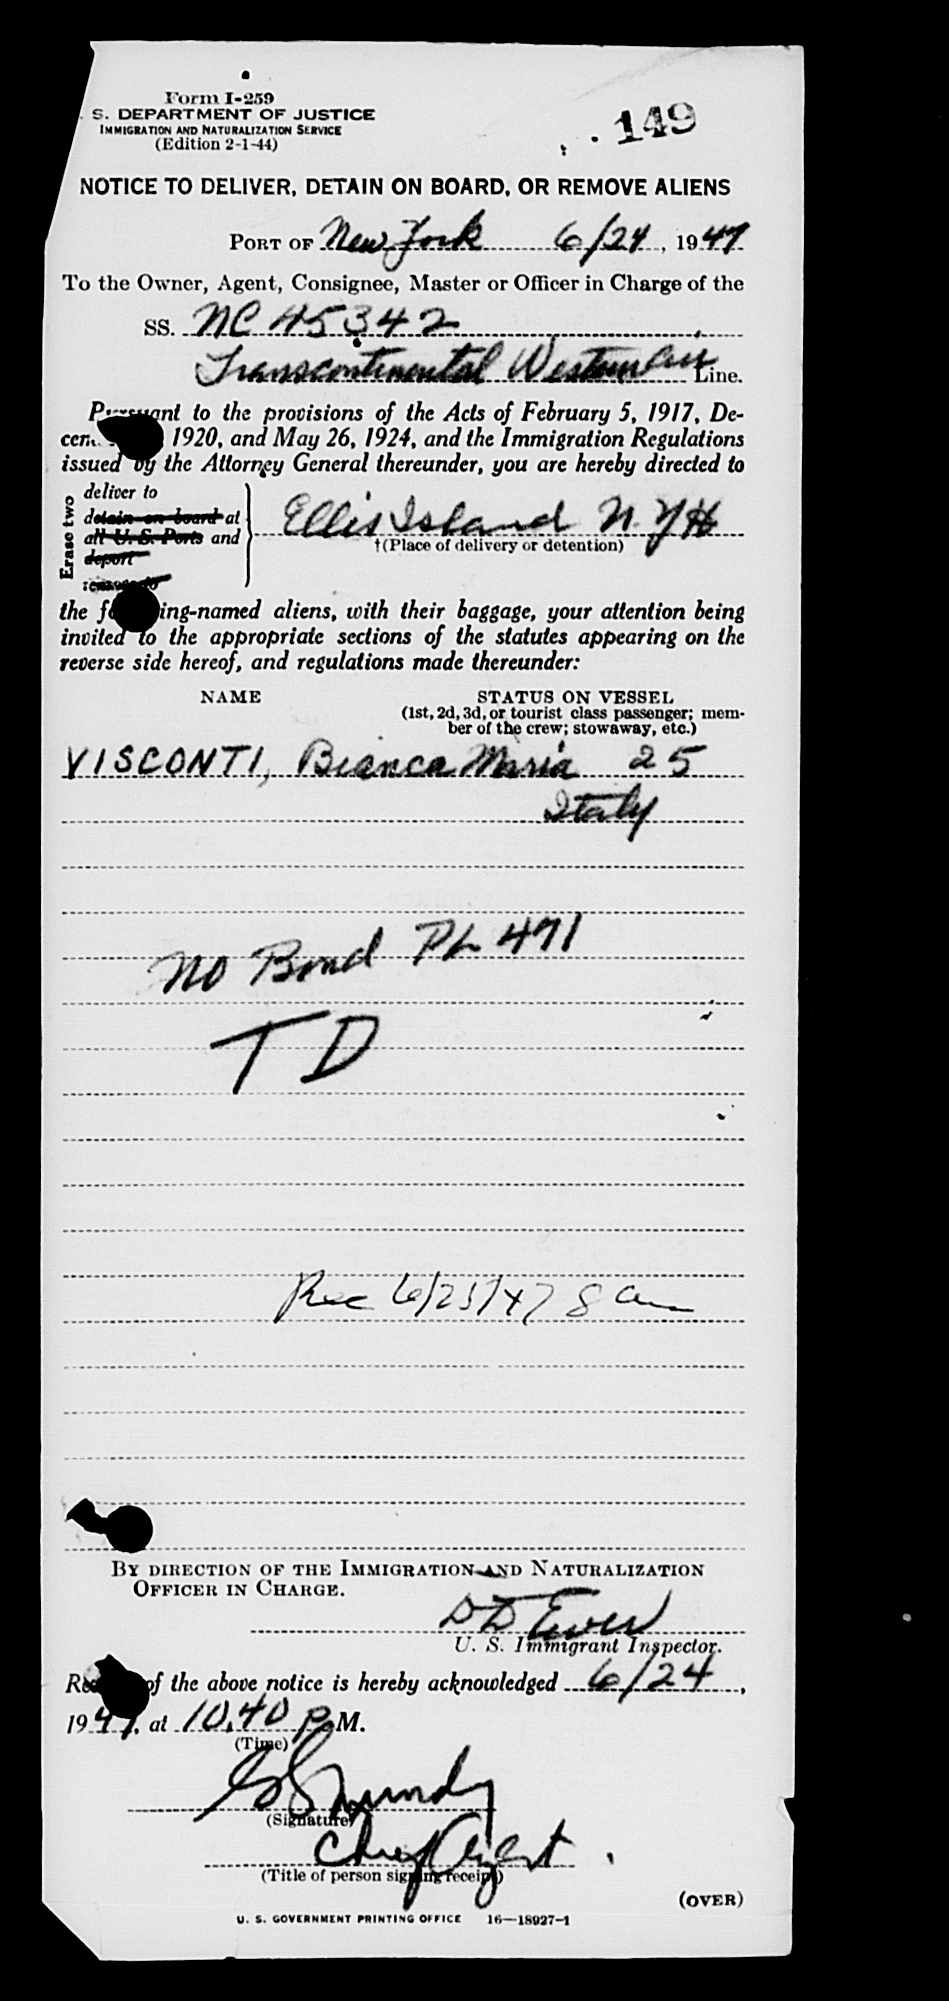 Form I-259
S. DEPARTMENT OF JUSTICE
IMMIGRATION AND NATURALIZATION SERVICE
(Edition 2-1-44)
149
NOTICE TO DELIVER, DETAIN ON BOARD, OR REMOVE ALIENS
PORT OF New York 6/24, 1947
To the Owner, Agent, Consignee, Master or Officer in Charge of the
SS. NC 45342
Transcontinental Western Air Line.
Pursuant to the provisions of the Acts of February 5, 1917, De-
cem 1920, and May 26, 1924, and the Immigration Regulations
issued by the Attorney General thereunder, you are hereby directed to
Erase two
deliver to
detain on board at
all U. S. Ports and
deport
remove to
Ellis Island N. Y H
†(Place of delivery or detention)
the following-named aliens, with their baggage, your attention being
invited to the appropriate sections of the statutes appearing on the
reverse side hereof, and regulations made thereunder:
NAME STATUS ON VESSEL
(1st, 2d, 3d, or tourist class passenger; mem-
ber of the crew; stowaway, etc.)
VISCONTI, Bianca Maria 25
Italy
No Bond PL 471
T D
Rec 6/25/47 8 am
BY DIRECTION OF THE IMMIGRATION AND NATURALIZATION
OFFICER IN CHARGE.
U. S. Immigrant Inspector.
of the above notice is hereby acknowledged 6/24,
1947, at 10.40 P.M.
(Time)
(Signature)
Chief Agent
(Title of person signing receipt)
(OVER)
U. S. GOVERNMENT PRINTING OFFICE 16—18927-1